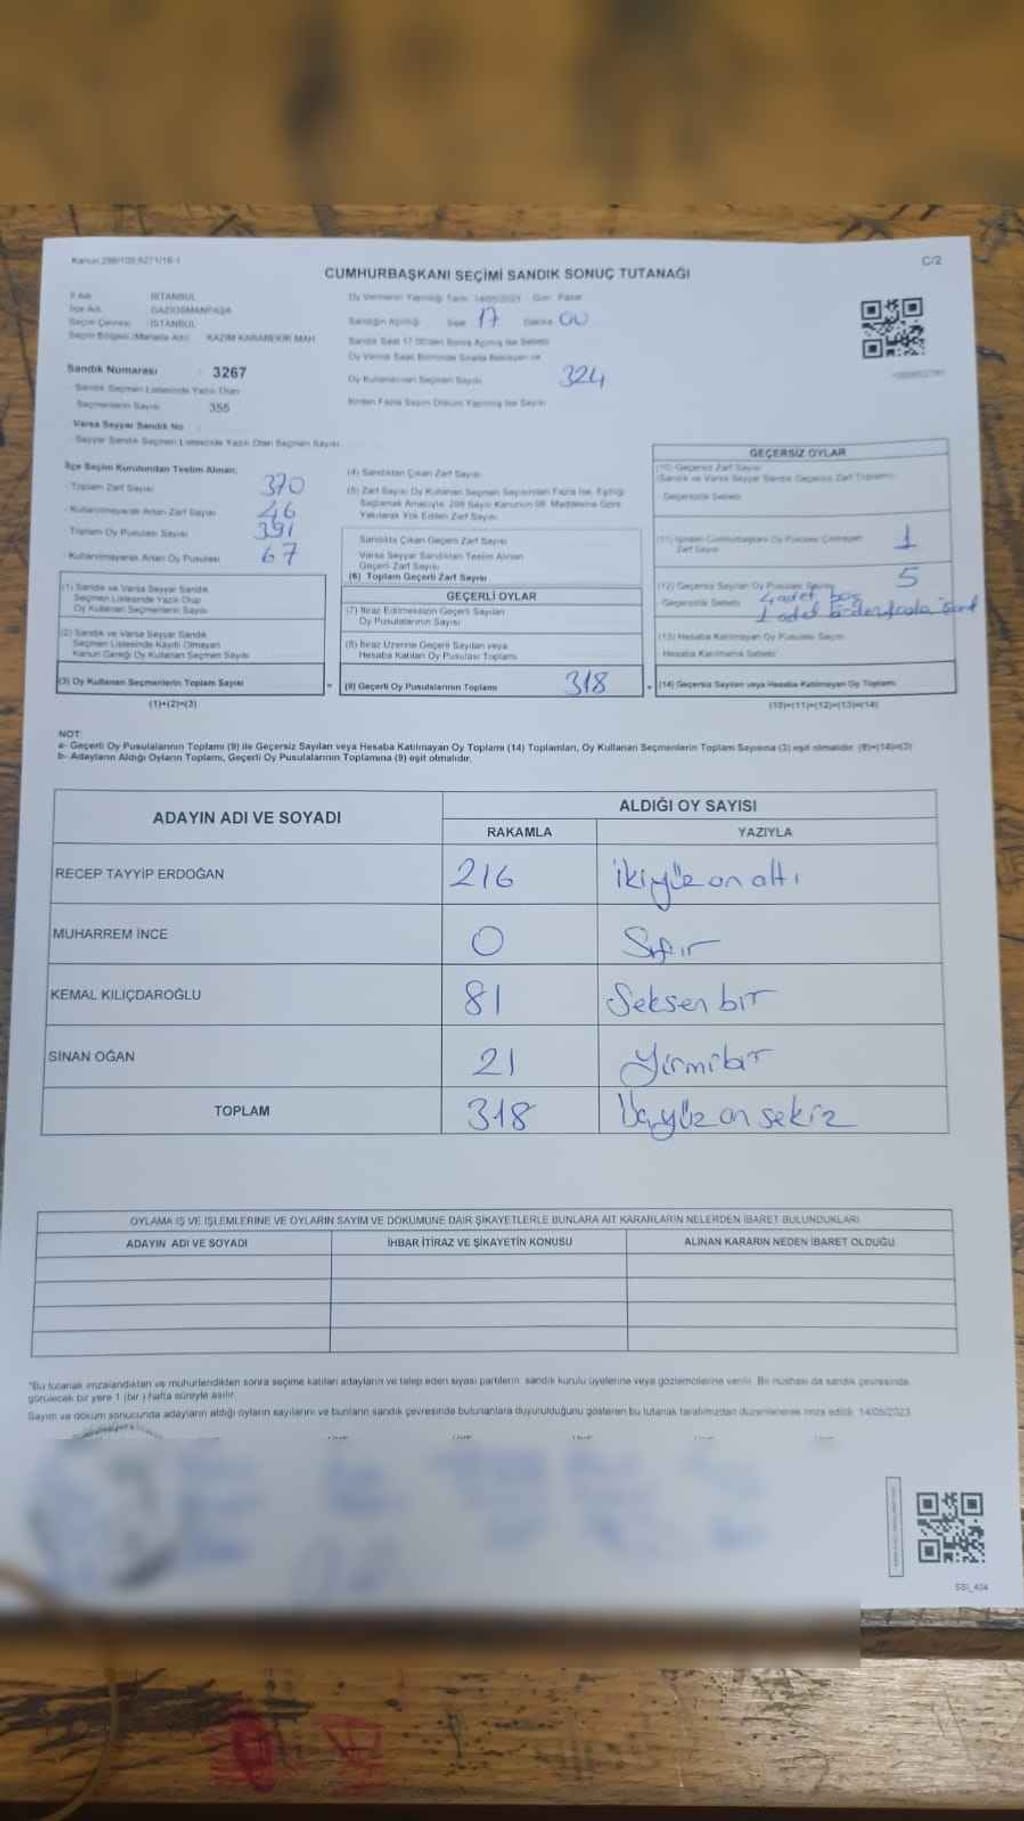 Kanun 298/105 6271/16-1
C/2
CUMHURBAŞKANI SEÇİMİ SANDIK SONUÇ TUTANAĞI
İl Adı İSTANBUL
İlçe Adı GAZİOSMANPAŞA
Seçim Çevresi İSTANBUL
KAZIM KARABEKİR MAH
Oy Vermenin Yapıldığı Tarih 14/05/2023 Gün Pazar
Sandığın Açılışı Saat 17 Dakika 00
Oy Kullanan Seçmen Sayısı 324
Sandık Numarası 3267
Sandık Seçmen Listesinde Yazılı Olan
Seçmenlerin Sayısı 355
Varsa Seyyar Sandık No
Seyyar Sandık Seçmen Listesinde Yazılı Olan Seçmen Sayısı
İlçe Seçim Kurulundan Teslim Alınan:
Toplam Zarf Sayısı 370
Kullanılmayarak Artan Zarf Sayısı 46
Toplam Oy Pusulası Sayısı 391
Kullanılmayarak Artan Oy Pusulası 67
(1) Sandık ve Varsa Seyyar Sandık
Seçmen Listesinde Yazılı Olup
Oy Kullanan Seçmenlerin Sayısı
(2) Sandık ve Varsa Seyyar Sandık
Seçmen Listesinde Kayıtlı Olmayan
Kanun Gereği Oy Kullanan Seçmen Sayısı
(3) Oy Kullanan Seçmenlerin Toplam Sayısı
(1)+(2)=(3)
(4) Sandıktan Çıkan Zarf Sayısı
(5) Zarf Sayısı Oy Kullanan Seçmen Sayısından Fazla İse, Eşitliği
Sağlamak Amacıyla, 298 Sayılı Kanunun 98. Maddesine Göre
Yakılarak Yok Edilen Zarf Sayısı
Sandıkta Çıkan Geçerli Zarf Sayısı
Varsa Seyyar Sandıktan Teslim Alınan
Geçerli Zarf Sayısı
(6) Toplam Geçerli Zarf Sayısı
GEÇERLİ OYLAR
(7) İtiraz Edilmeksizin Geçerli Sayılan
Oy Pusulalarının Sayısı
(8) İtiraz Üzerine Geçerli Sayılan veya
Hesaba Katılan Oy Pusulası Toplamı
(9) Geçerli Oy Pusulalarının Toplamı 318
GEÇERSİZ OYLAR
(10) Geçersiz Zarf Sayısı
(Sandık ve Varsa Seyyar Sandık Geçersiz Zarf Toplamı)
Geçersizlik Sebebi
(11) İçinden Cumhurbaşkanı Oy Pusulası Çıkmayan
Zarf Sayısı 1
(12) Geçersiz Sayılan Oy Pusulası Sayısı 5
Geçersizlik Sebebi 4 adet boş
1 adet birden fazla
(13) Hesaba Katılmayan Oy Pusulası Sayısı
Hesaba Katılmama Sebebi
(14) Geçersiz Sayılan veya Hesaba Katılmayan Oy Toplamı
(10)+(11)+(12)+(13)=(14)
NOT:
a- Geçerli Oy Pusulalarının Toplamı (9) ile Geçersiz Sayılan veya Hesaba Katılmayan Oy Toplamı (14) Toplamları, Oy Kullanan Seçmenlerin Toplam Sayısına (3) eşit olmalıdır. (9)+(14)=(3)
b- Adayların Aldığı Oyların Toplamı, Geçerli Oy Pusulalarının Toplamına (9) eşit olmalıdır.
ADAYIN ADI VE SOYADI ALDIĞI OY SAYISI
RAKAMLA YAZIYLA
RECEP TAYYİP ERDOĞAN 216 ikiyüz on altı
MUHARREM İNCE 0 Sıfır
KEMAL KILIÇDAROĞLU 81 Seksen bir
SİNAN OĞAN 21 Yirmibir
TOPLAM 318 Üçyüz on sekiz
OYLAMA İŞ VE İŞLEMLERİNE VE OYLARIN SAYIM VE DÖKÜMÜNE DAİR ŞİKAYETLERLE BUNLARA AİT KARARLARIN NELERDEN İBARET BULUNDUKLARI
ADAYIN ADI VE SOYADI İHBAR İTİRAZ VE ŞİKAYETİN KONUSU ALINAN KARARIN NEDEN İBARET OLDUĞU
*Bu tutanak imzalandıktan ve mühürlendikten sonra seçime katılan adayların ve talep eden siyasi partilerin sandık kurulu üyelerine veya gözlemcilerine verilir. Bir nüshası da sandık çevresinde
görülecek bir yere 1 (bir ) hafta süreyle asılır.
Sayım ve döküm sonucunda adayların aldığı oyların sayılarını ve bunların sandık çevresinde bulunanlara duyurulduğunu gösteren bu tutanak tarafımızdan düzenlenerek imza edildi. 14/05/2023